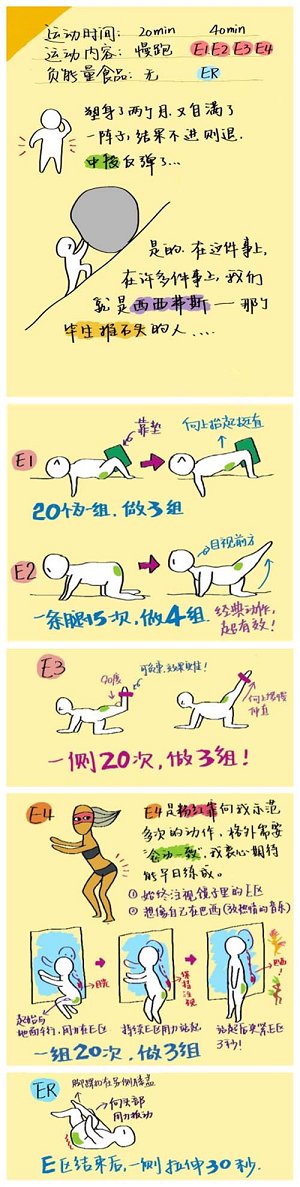 运动时间: 20min 40min
运动内容: 慢跑 E1 E2 E3 E4
负能量食品: 无 ER
塑身了两个月,又自满了
一阵子,结果不进则退.
中楼反弹了...
是的.在这件事上,
在许多件事上,我们
就是西西弗斯——那个
毕生推石头的人....
E1
靠垫
向上抬起挺直
20个一组,做3组
E2
目视前方
一条腿15次,做4组.
经典动作,
超有效!
E3
90度
可负重,效果更佳!
向上缓慢
伸直
一侧20次,做3组!
E4
E4是粉红靠向我示范
多次的动作,格外需要
“念力一致”,我衷心期待
能早日练成。
① 始终注视镜子里的E区
② 想像自己在巴西(放热情的音乐)
目视
保持注视
巴西!
起始与
地面平行,用力在E区
持续E区用力站起
站起后夹紧E区
3秒!
一组20次,做3组
ER
脚踝扣在另侧膝盖
向头部
用力扳动
E区结束后,一侧拉伸30秒.